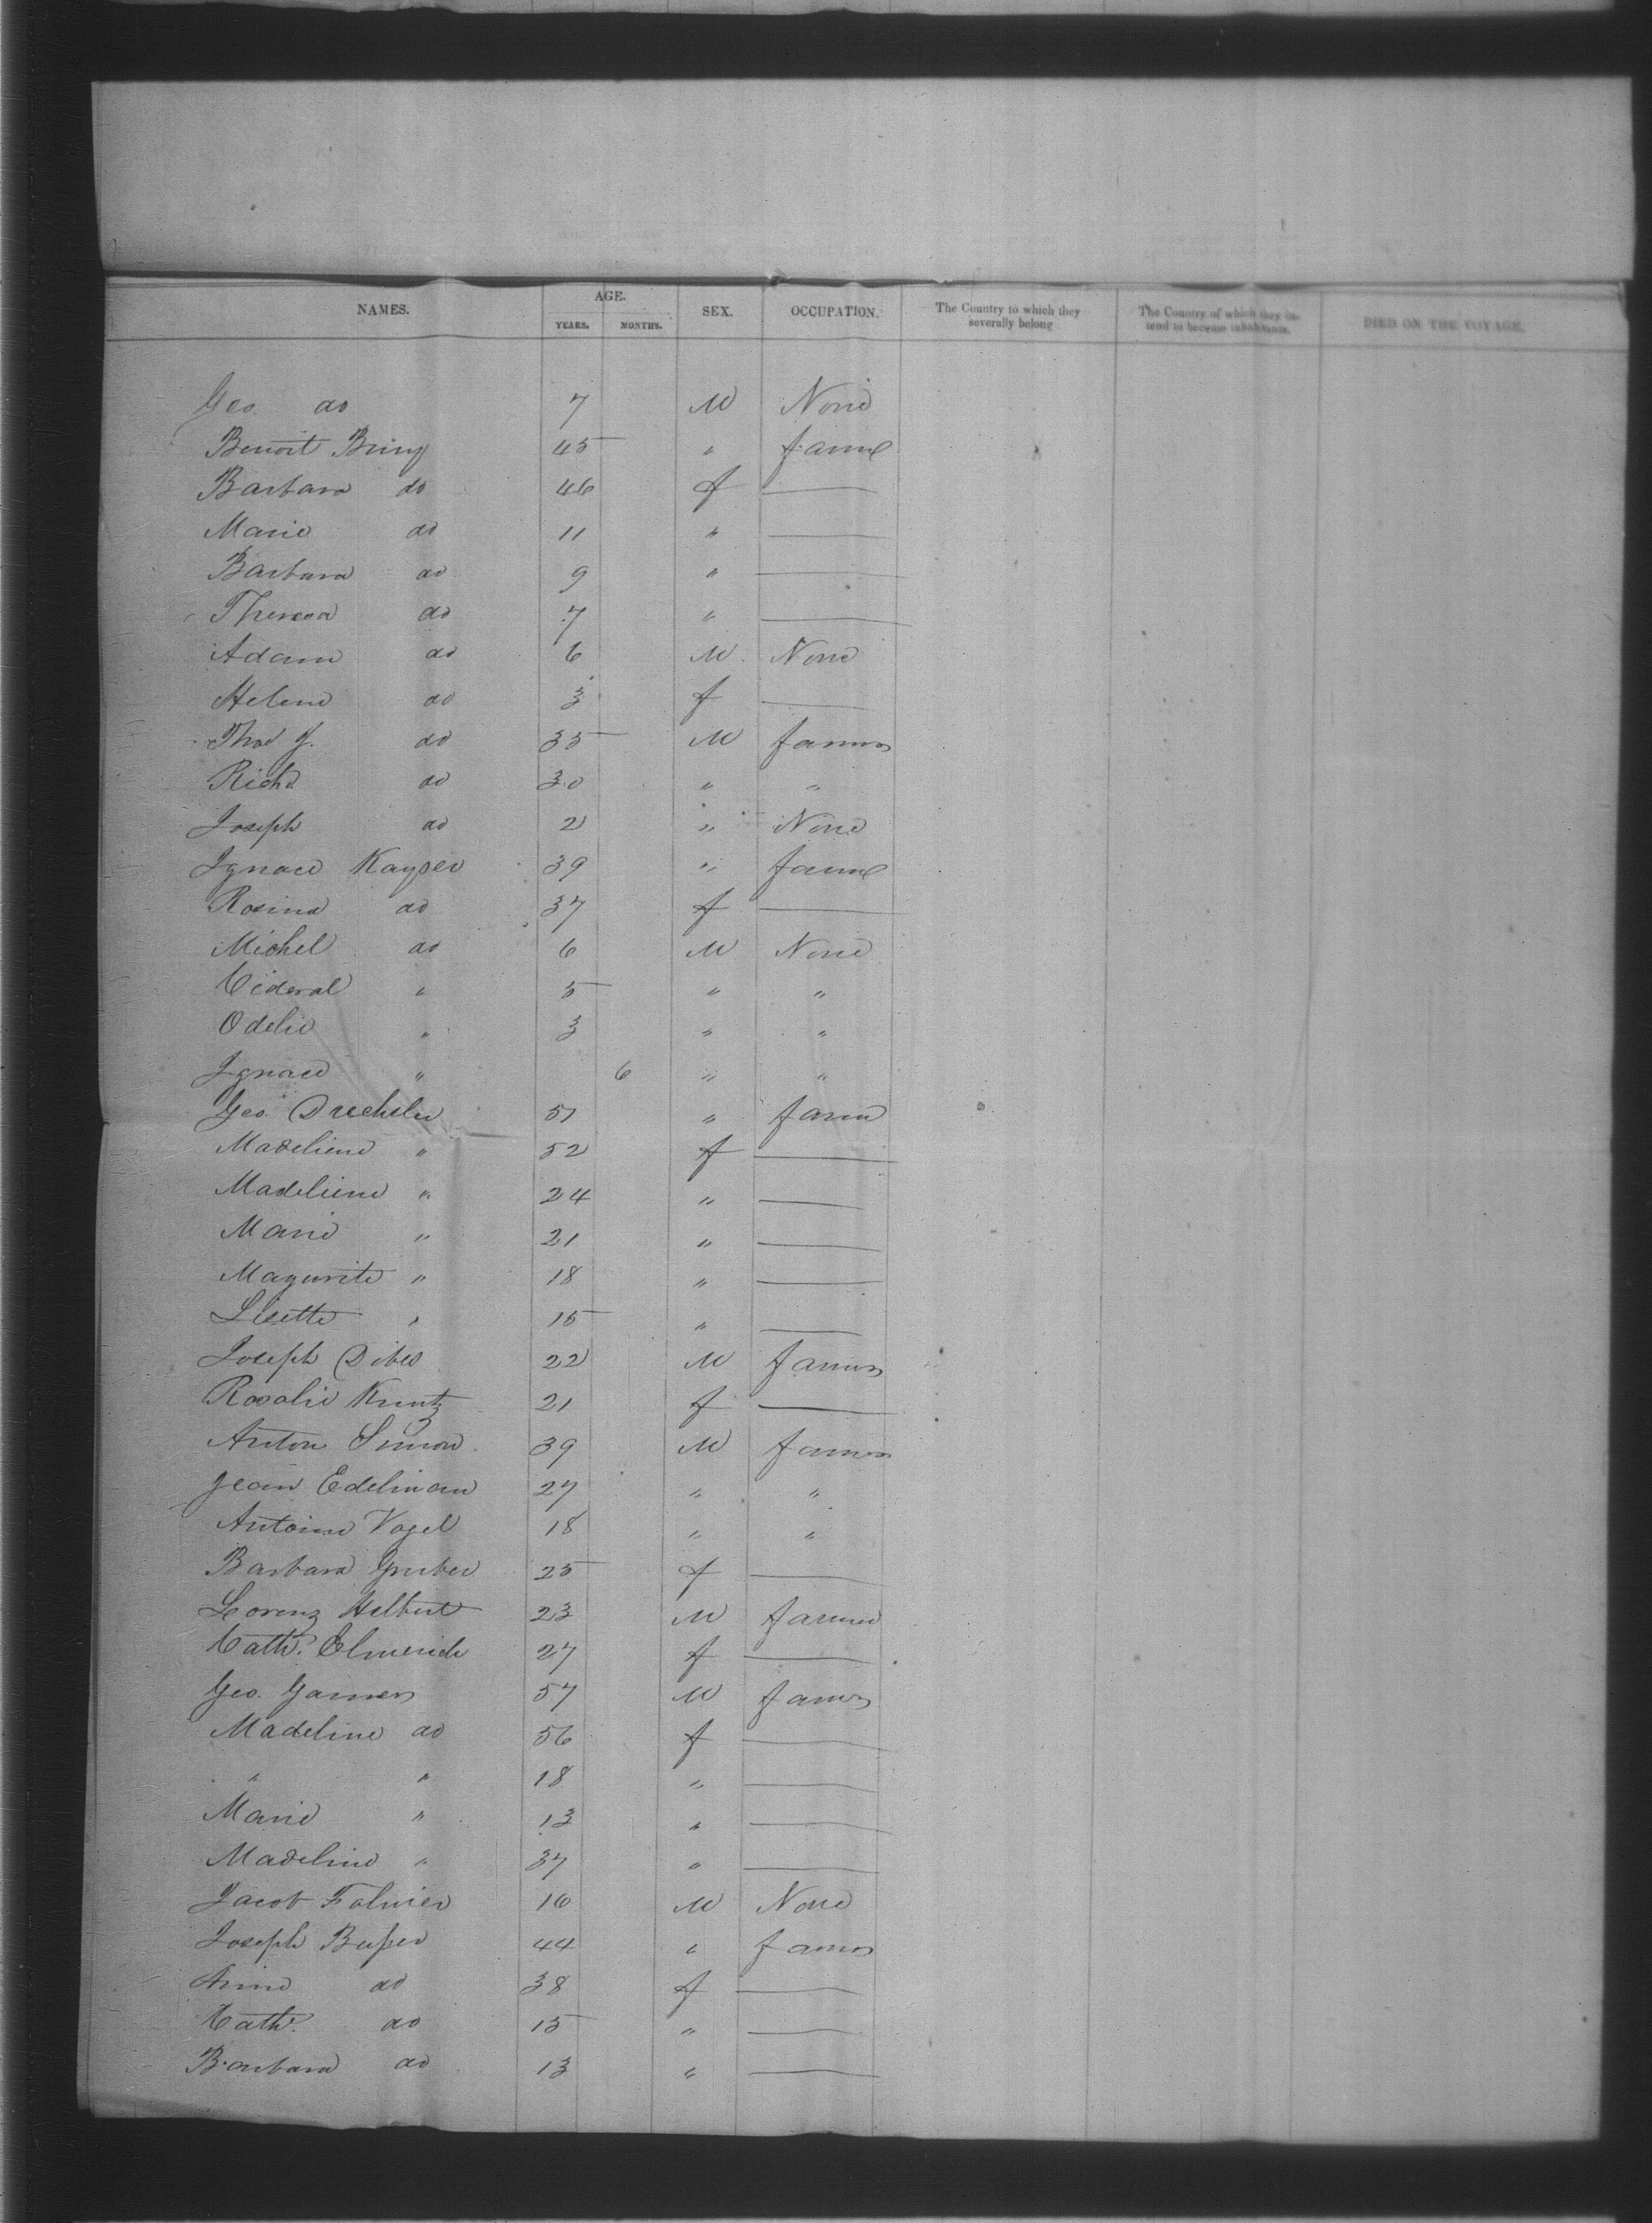 NAMES. AGE. YEARS. MONTHS. SEX. OCCUPATION. The Country to which they severally belong The Country of which they intend to become inhabitants. DIED ON THE VOYAGE.
Geo. do 7 M None
Benoit Bring 45 " farme
Barbara do 46 f —
Marie do 11 " —
Barbara do 9 " —
Theresa do 7 " —
Adam do 6 M None
Helene do 3 f —
Thos J. do 35 M farmer
Richd do 30 " "
Joseph do 2 " None
Ignace Kayser 39 " farme
Rosina do 37 f —
Michel do 6 M None
" 5 " "
Odelie " 3 " "
Ignace " 6 " "
Geo. Drechsler 51 " farm
Madeliene " 52 f —
Madeliene " 24 " —
Marie " 21 " —
Magurite " 18 " —
Lisette " 15 " —
Joseph Dibes 22 M farmer
Rosalie Kuntz 21 f —
Anton Simon 39 M farmer
Jean Edelman 27 " "
Antoine Vogel 18 " "
Barbara Gruber 25 f —
Lorenz Helbert 23 M farmer
Cath. Elmerich 27 f —
Geo. 57 M farmer
Madeline do 56 f —
" " 18 " —
Marie " 13 " —
Madeline " 37 " —
Jacob Folmer 16 M None
Joseph 44 " farmer
Anne do 38 f —
Cath. do 15 " —
Barbara do 13 " —